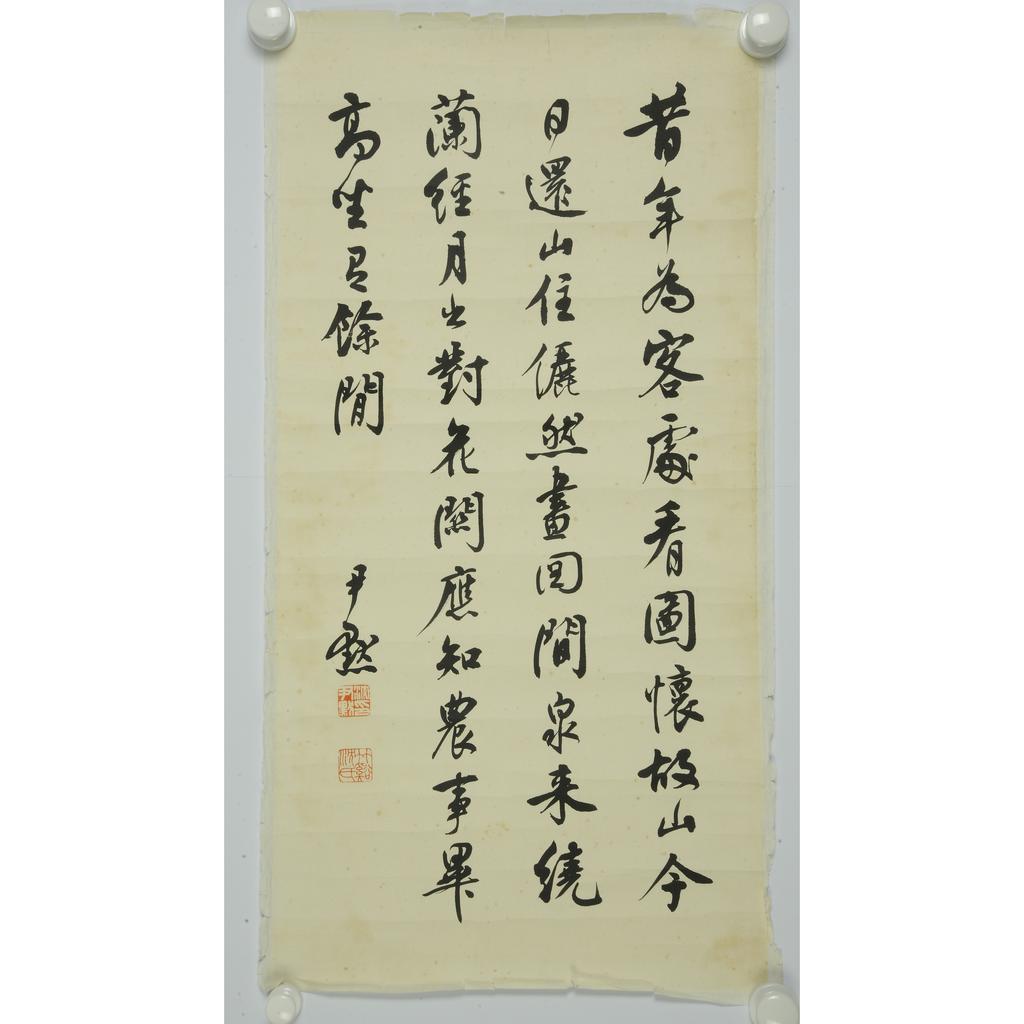 昔年為客處看圖懷故山今
日還山住儼然畫図間泉来繞
蘭經月出對花關應知農事畢
高坐有餘閒
尹默
竹谿沈氏